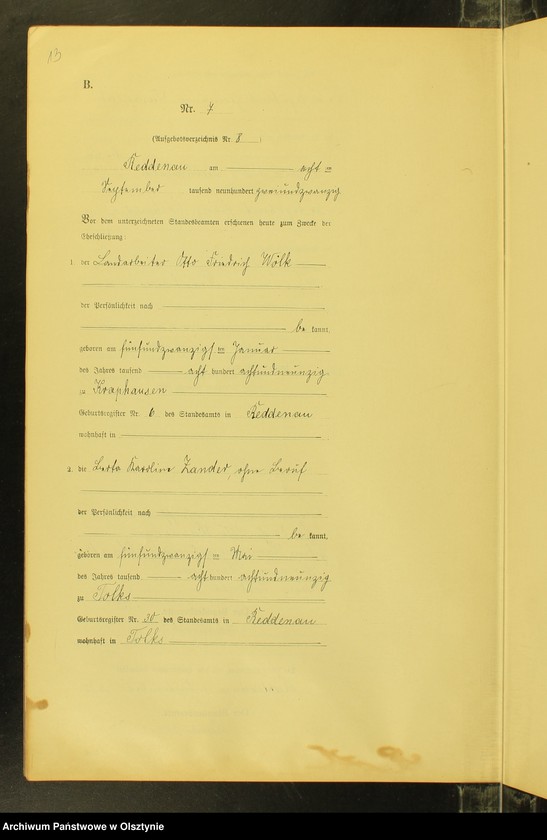 13
B.
Nr. 7
(Aufgebotsverzeichnis Nr. 8)
Reddenau am acht ten
September tausend neunhundert zweiundzwanzig
Vor dem unterzeichneten Standesbeamten erschienen heute zum Zwecke der
Eheschließung:
1. der Landarbeiter Otto Friedrich Wölk
der Persönlichkeit nach
be kannt,
geboren am fünfundzwanzigsten Januar
des Jahres tausend acht hundert achtundneunzig
zu Kraphausen
Geburtsregister Nr. 6 des Standesamts in Reddenau
wohnhaft in
2. die Berta Karoline Zander, ohne Beruf
der Persönlichkeit nach
be kannt,
geboren am fünfundzwanzigsten Mai
des Jahres tausend acht hundert achtundneunzig
zu Tolks
Geburtsregister Nr. 30 des Standesamts in Reddenau
wohnhaft in Tolks
Archiwum Państwowe w Olsztynie